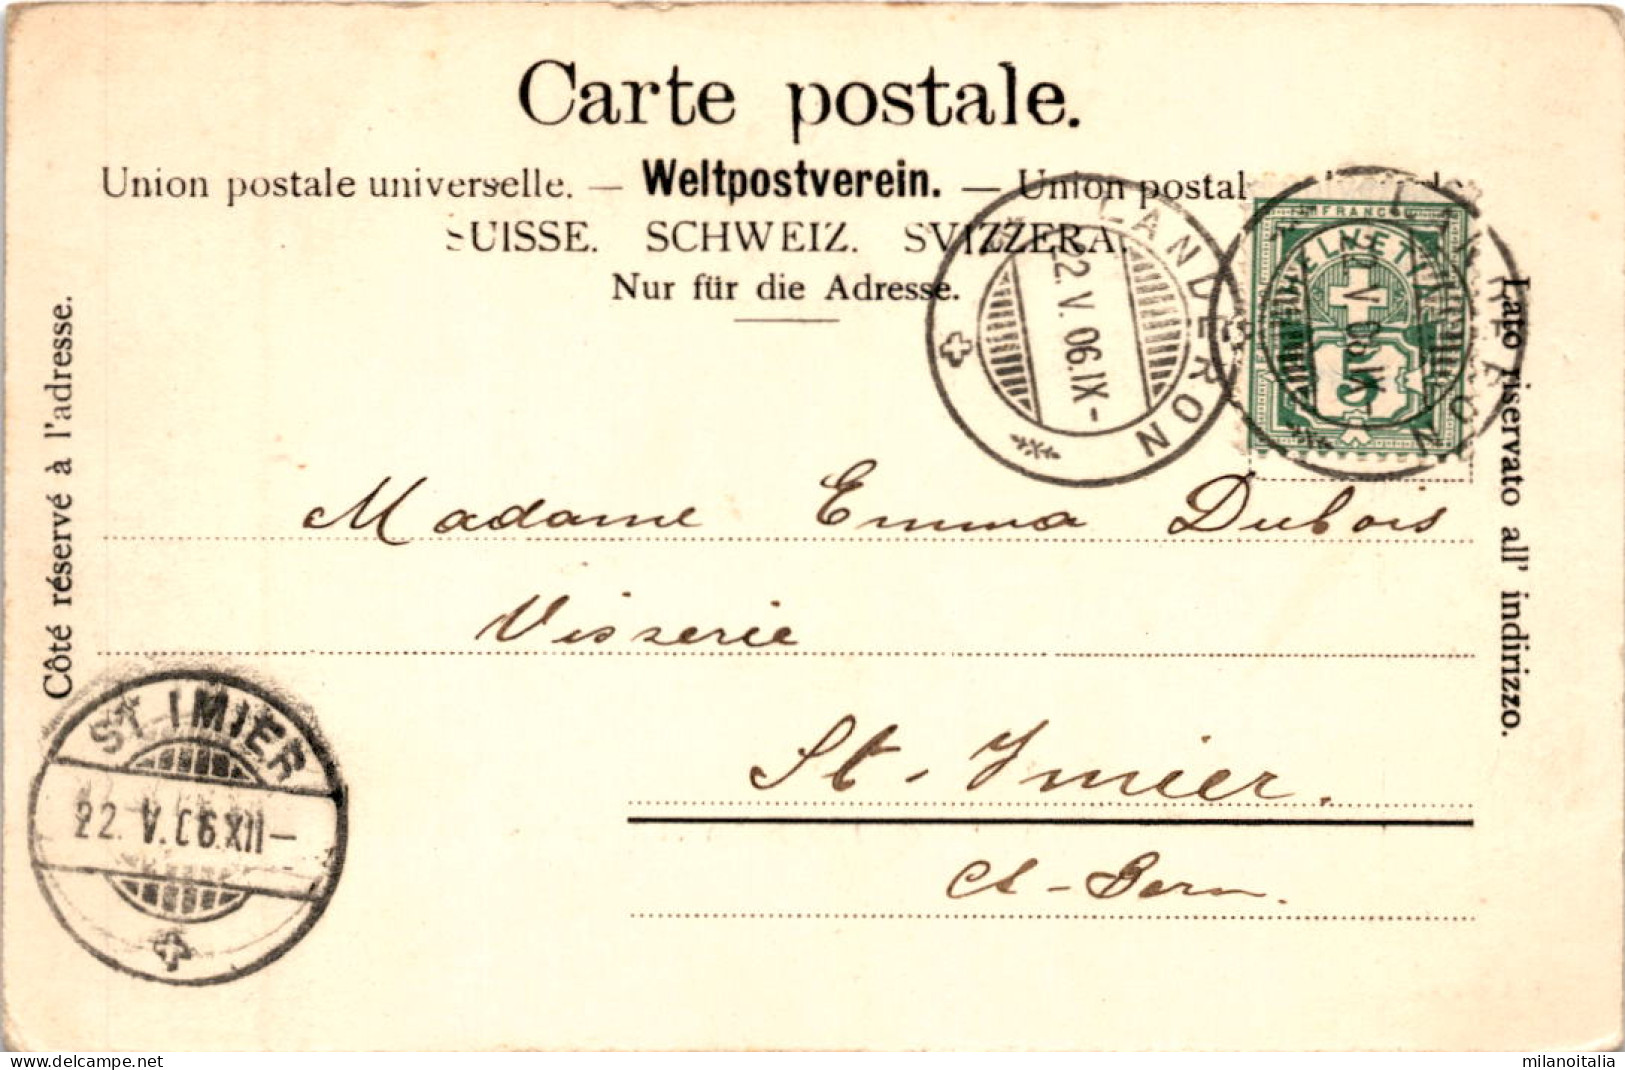 Carte postale.
Union postale universelle. — Weltpostverein. — Union postal
SUISSE. SCHWEIZ. SVIZZERA.
Nur für die Adresse.
Côté réservé à l'adresse.
Lato riservato all' indirizzo.
LANDERON
22. V. 06. IX-
FRANCO
HELVETIA
5
LANDERON
V. 06. IX-
Madame Emma Dubois
Visserie
St. Imier.
Ct-Bern.
ST. IMIER
22. V. 06. XII—
www.delcampe.net
milanoitalia